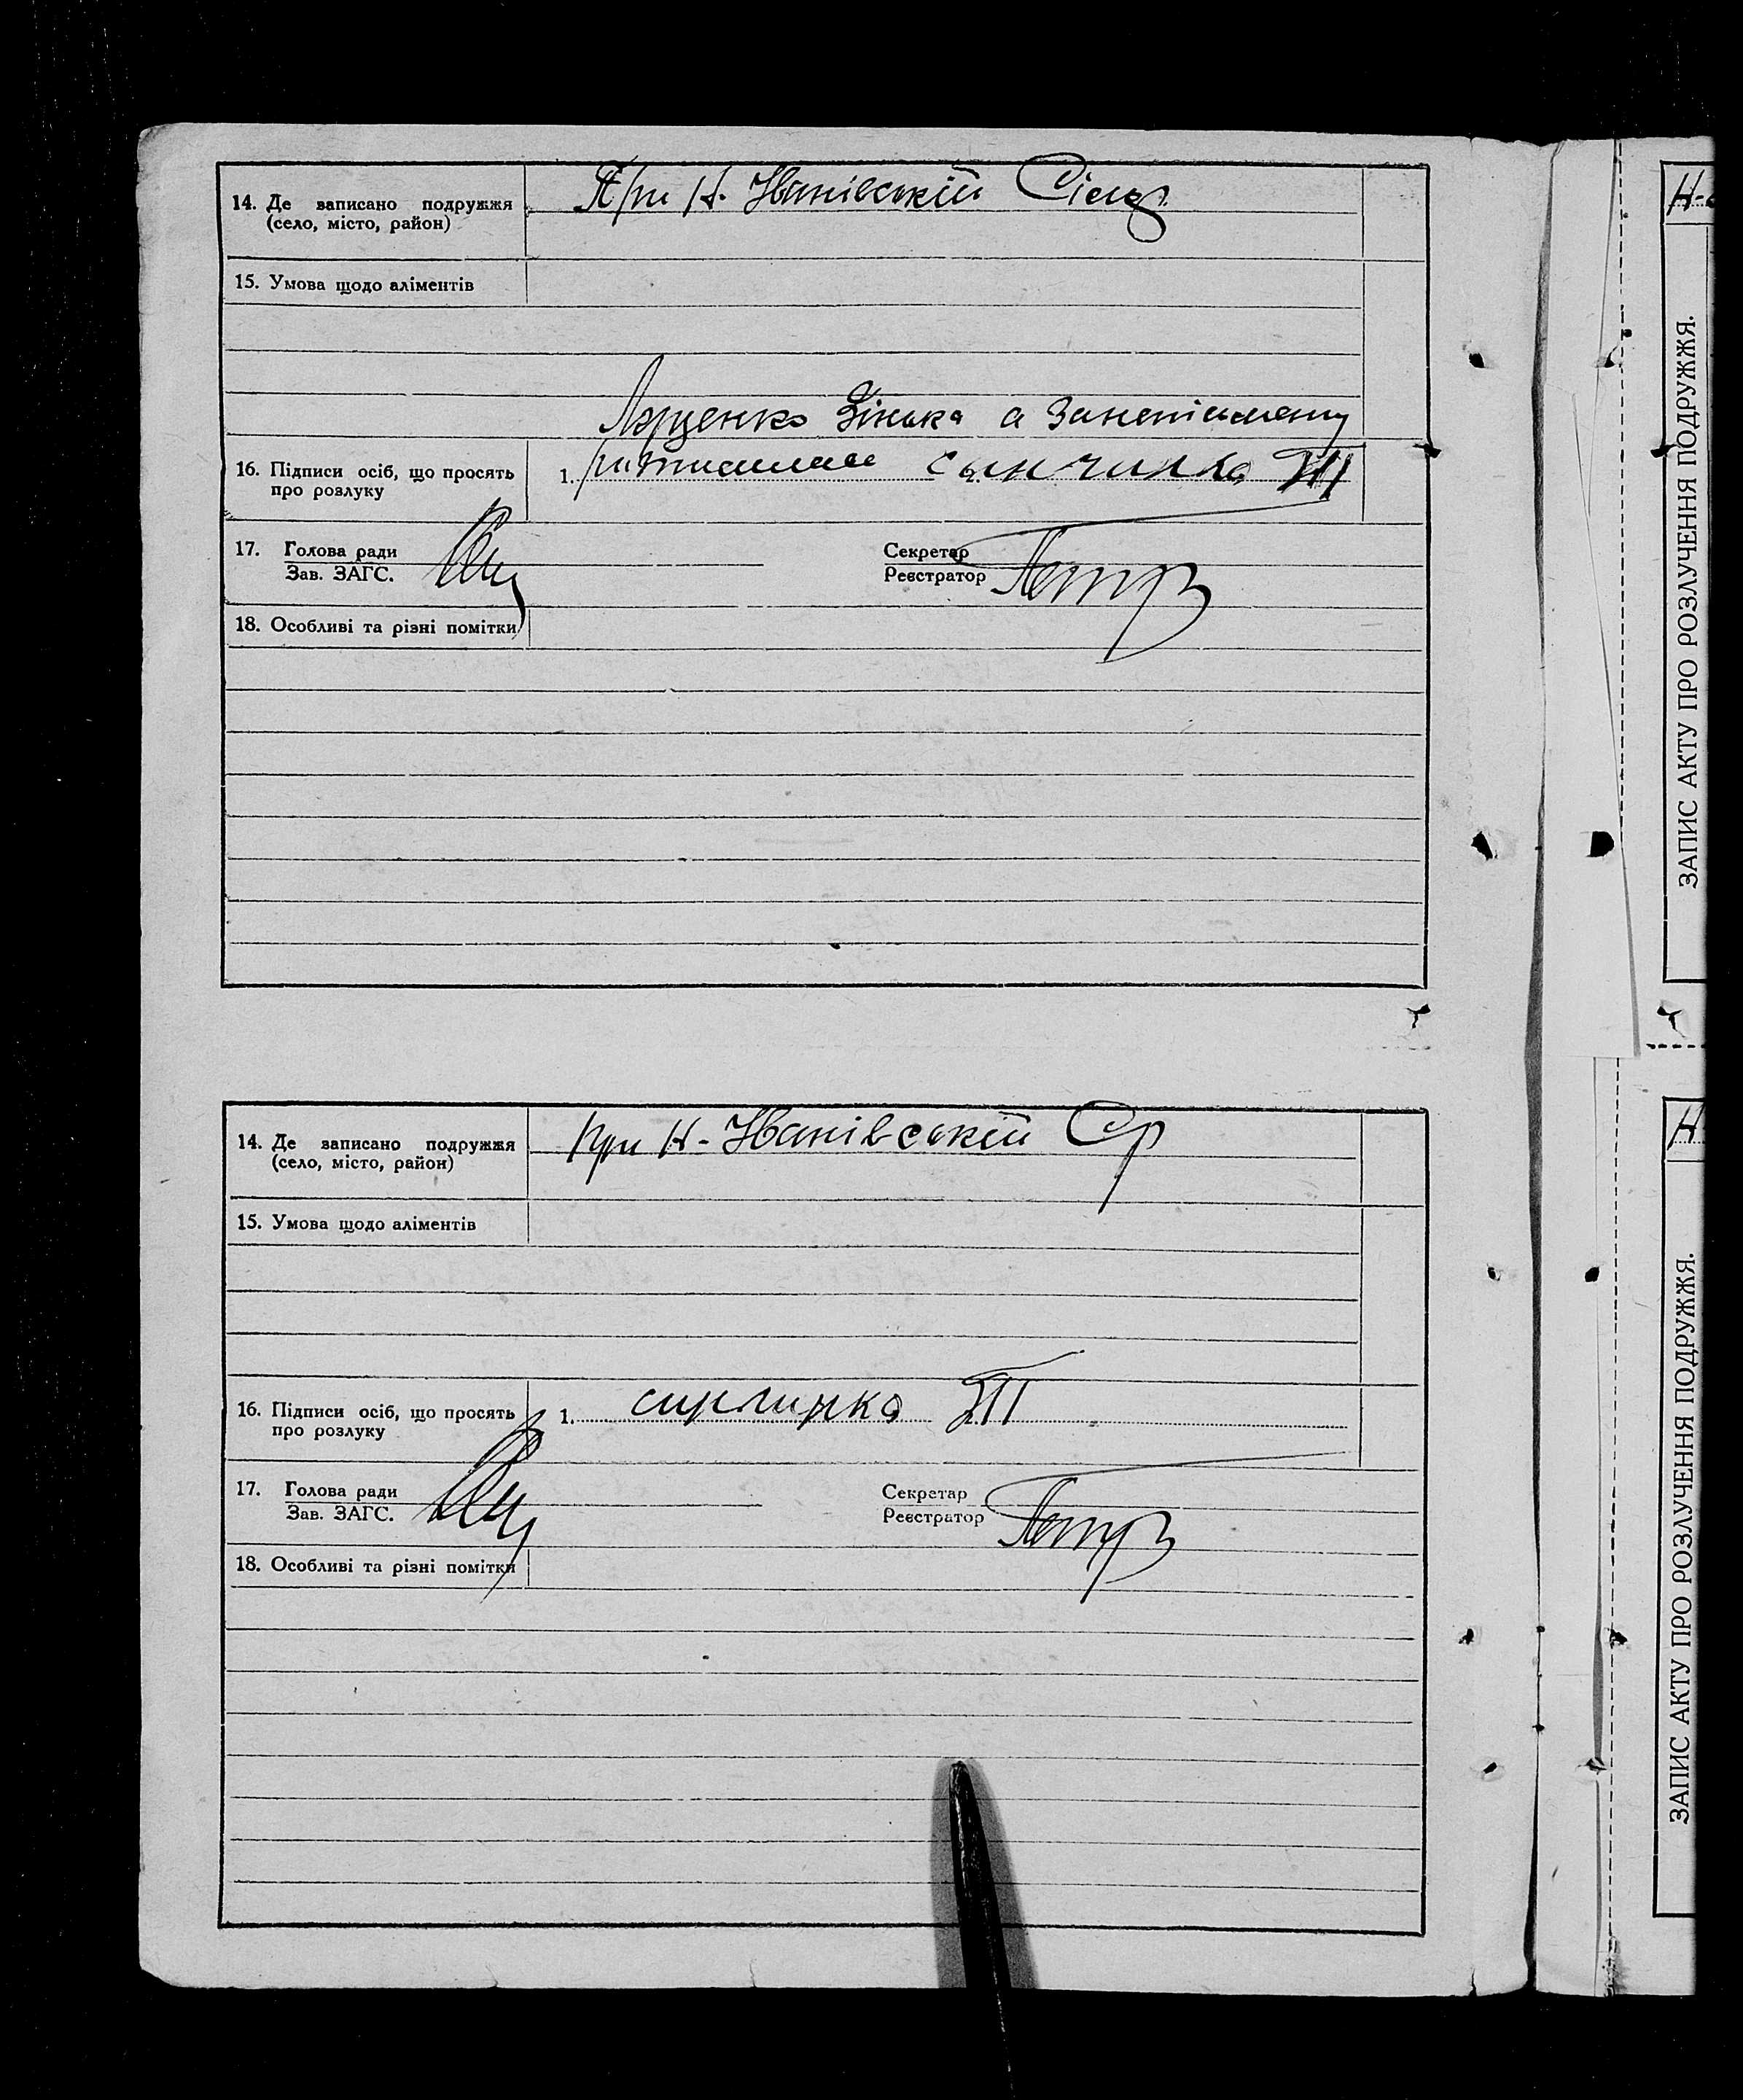 14. Де записано подружжя
(село, місто, район)
При Н. Іванівській
15. Умова щодо аліментів
Луценко Зінька а за неписьменну
16. Підписи осіб, що просять
про розлуку
1.
17. Голова ради
Зав. ЗАГС.
Секретар
Реєстратор
18. Особливі та різні помітки
14. Де записано подружжя
(село, місто, район)
при Н-Іванівській Ср
15. Умова щодо аліментів
16. Підписи осіб, що просять
про розлуку
1.
17. Голова ради
Зав. ЗАГС.
Секретар
Реєстратор
18. Особливі та різні помітки
ЗАПИС АКТУ ПРО РОЗЛУЧЕННЯ ПОДРУЖЖЯ.
Н
ЗАПИС АКТУ ПРО РОЗЛУЧЕННЯ ПОДРУЖЖЯ.